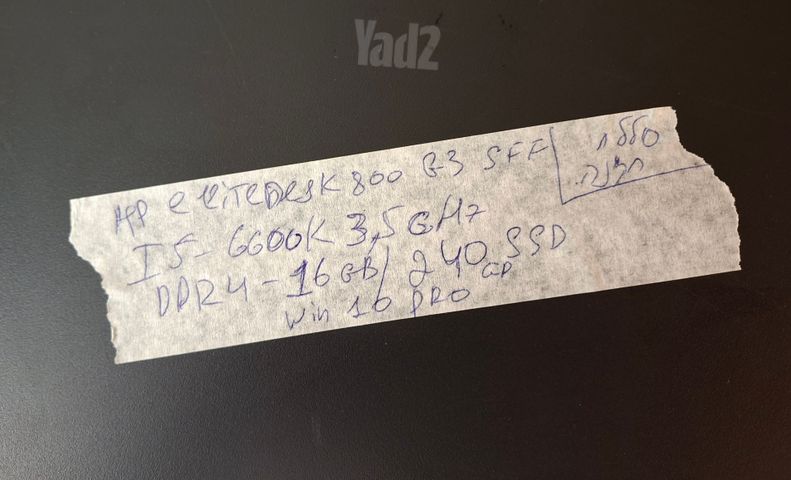 Yad2
HP eliteDesk 800 G3 SFF
I5-6600K 3,5GHz
DDR4-16GB/240GB SSD
Win 10 PRO